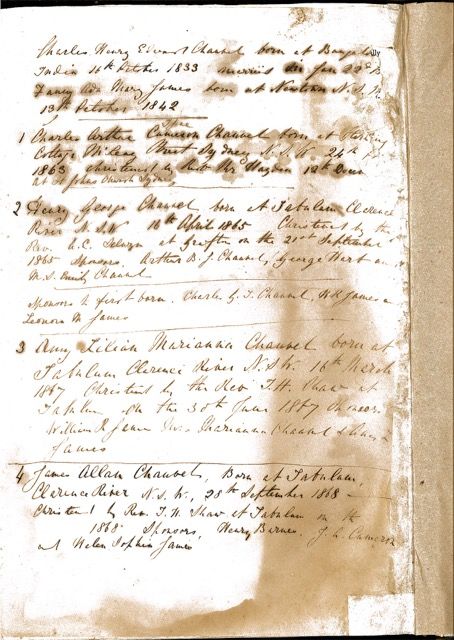 Charles Henry Edward Chauvel born at Bangalore
India 11th October 1833 married in Jan 22nd
Fanny Ada Mary James born at Newtown N.S.W
13th October 1842
1 Charles Arthur Cameron Chauvel born at
Cottage Sydney N.S.W 24th
1863 Christened by Revd Mr Hayden 12th
at St Johns Church Sydney
2 Henry George Chauvel born at Tabulam Clarence
River N.S.W 16th April 1865 Christened by the
Rev. A.C. Selwyn at Grafton on the 21st September
1865 Sponsors. Arthur B. J. Chauvel, George Hart
Emily Chauvel
Sponsors to first born. Charles G. T. Chauvel, H R James
Leonora M James
3 Amy Lilian Marianna Chauvel born at
Tabulam Clarence River N.S.W. 16th March
1867 Christened by the Rev T.H. Shaw at
Tabulam on the 30th June 1867 Sponsors
William R James Marianna Chauvel &
James
4 James Allan Chauvel, Born at Tabulam,
Clarence River N.S.W., 28th September 1868 -
Christened by Rev. T. H. Shaw at Tabulam on the
1868 Sponsors, Henry Barnes. J. A. Cameron
Helen Sophia James